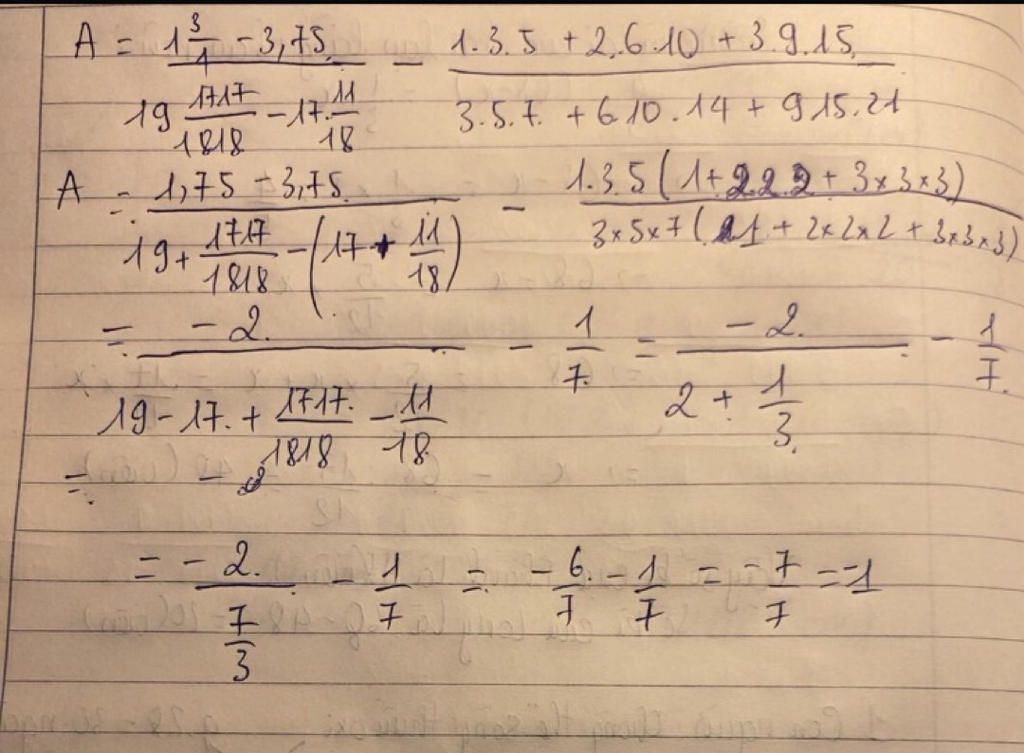 A = (1 3/4 - 3,75)/(19 1717/1818 - 17 . 11/18) - (1.3.5 + 2.6.10 + 3.9.15)/(3.5.7. + 6.10.14 + 9 15.21)
A = (1,75 - 3,75)/(19 + 1717/1818 - (17 + 11/18)) - (1.3.5 (1 + 2.2.2 + 3×3×3))/(3×5×7 (1 + 2×2×2 + 3×3×3))
= (-2.)/(19 - 17. + 1717./1818 - 11/18) - 1/7. = (-2.)/(2 + 1/3.) - 1/7.
= -
= (-2.)/(7/3) - 1/7 = -6./7 - 1/7 = -7/7 = -1